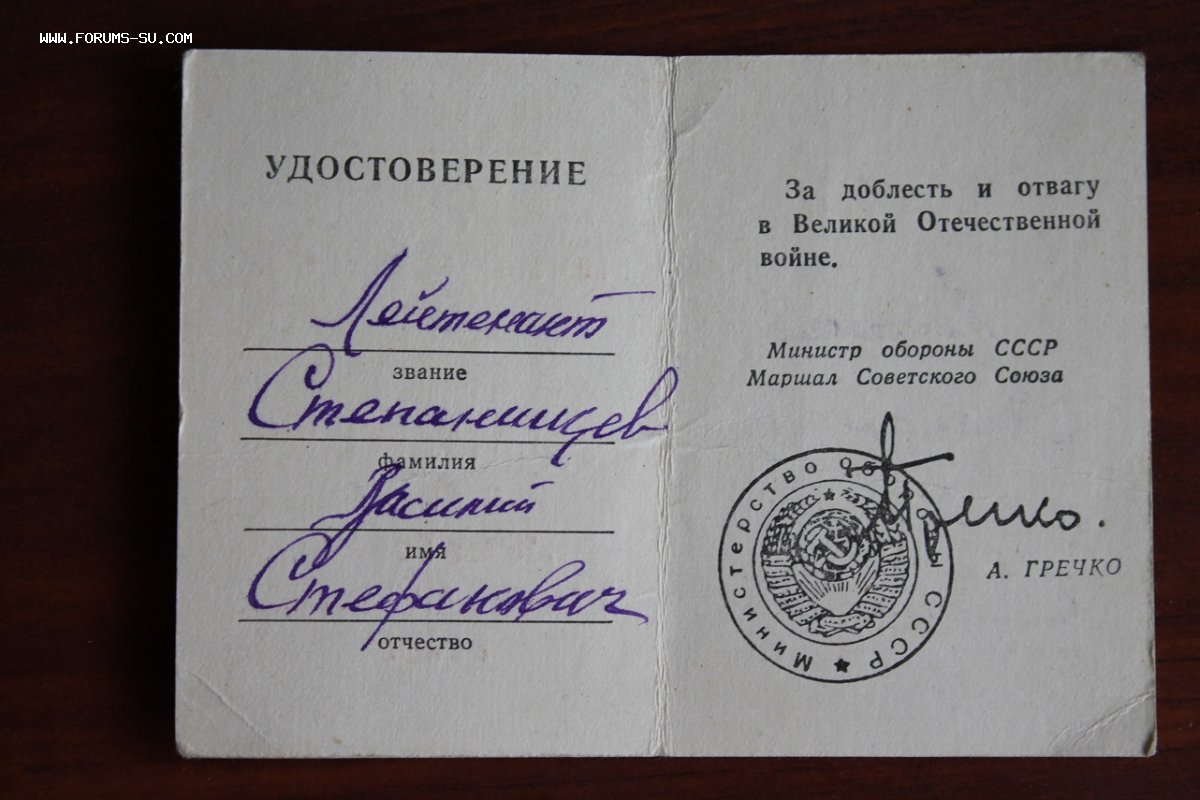 WWW.FORUMS-SU.COM
УДОСТОВЕРЕНИЕ
Лейтенант
звание
Степанищев
фамилия
Василий
имя
Стефанович
отчество
За доблесть и отвагу
в Великой Отечественной
войне.
Министр обороны СССР
Маршал Советского Союза
Министерство Обороны СССР
Гречко.
А. ГРЕЧКО